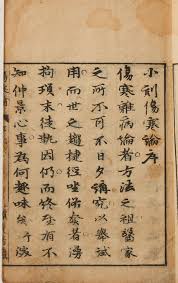 小刻傷寒論序
傷寒雜病論者方法之祖醫家
之所不可不日夕講究以舉試
用而世之趨捷徑者湧
拘瑣末徒執因仍而終至有不
知仲景心事為何趣味矣